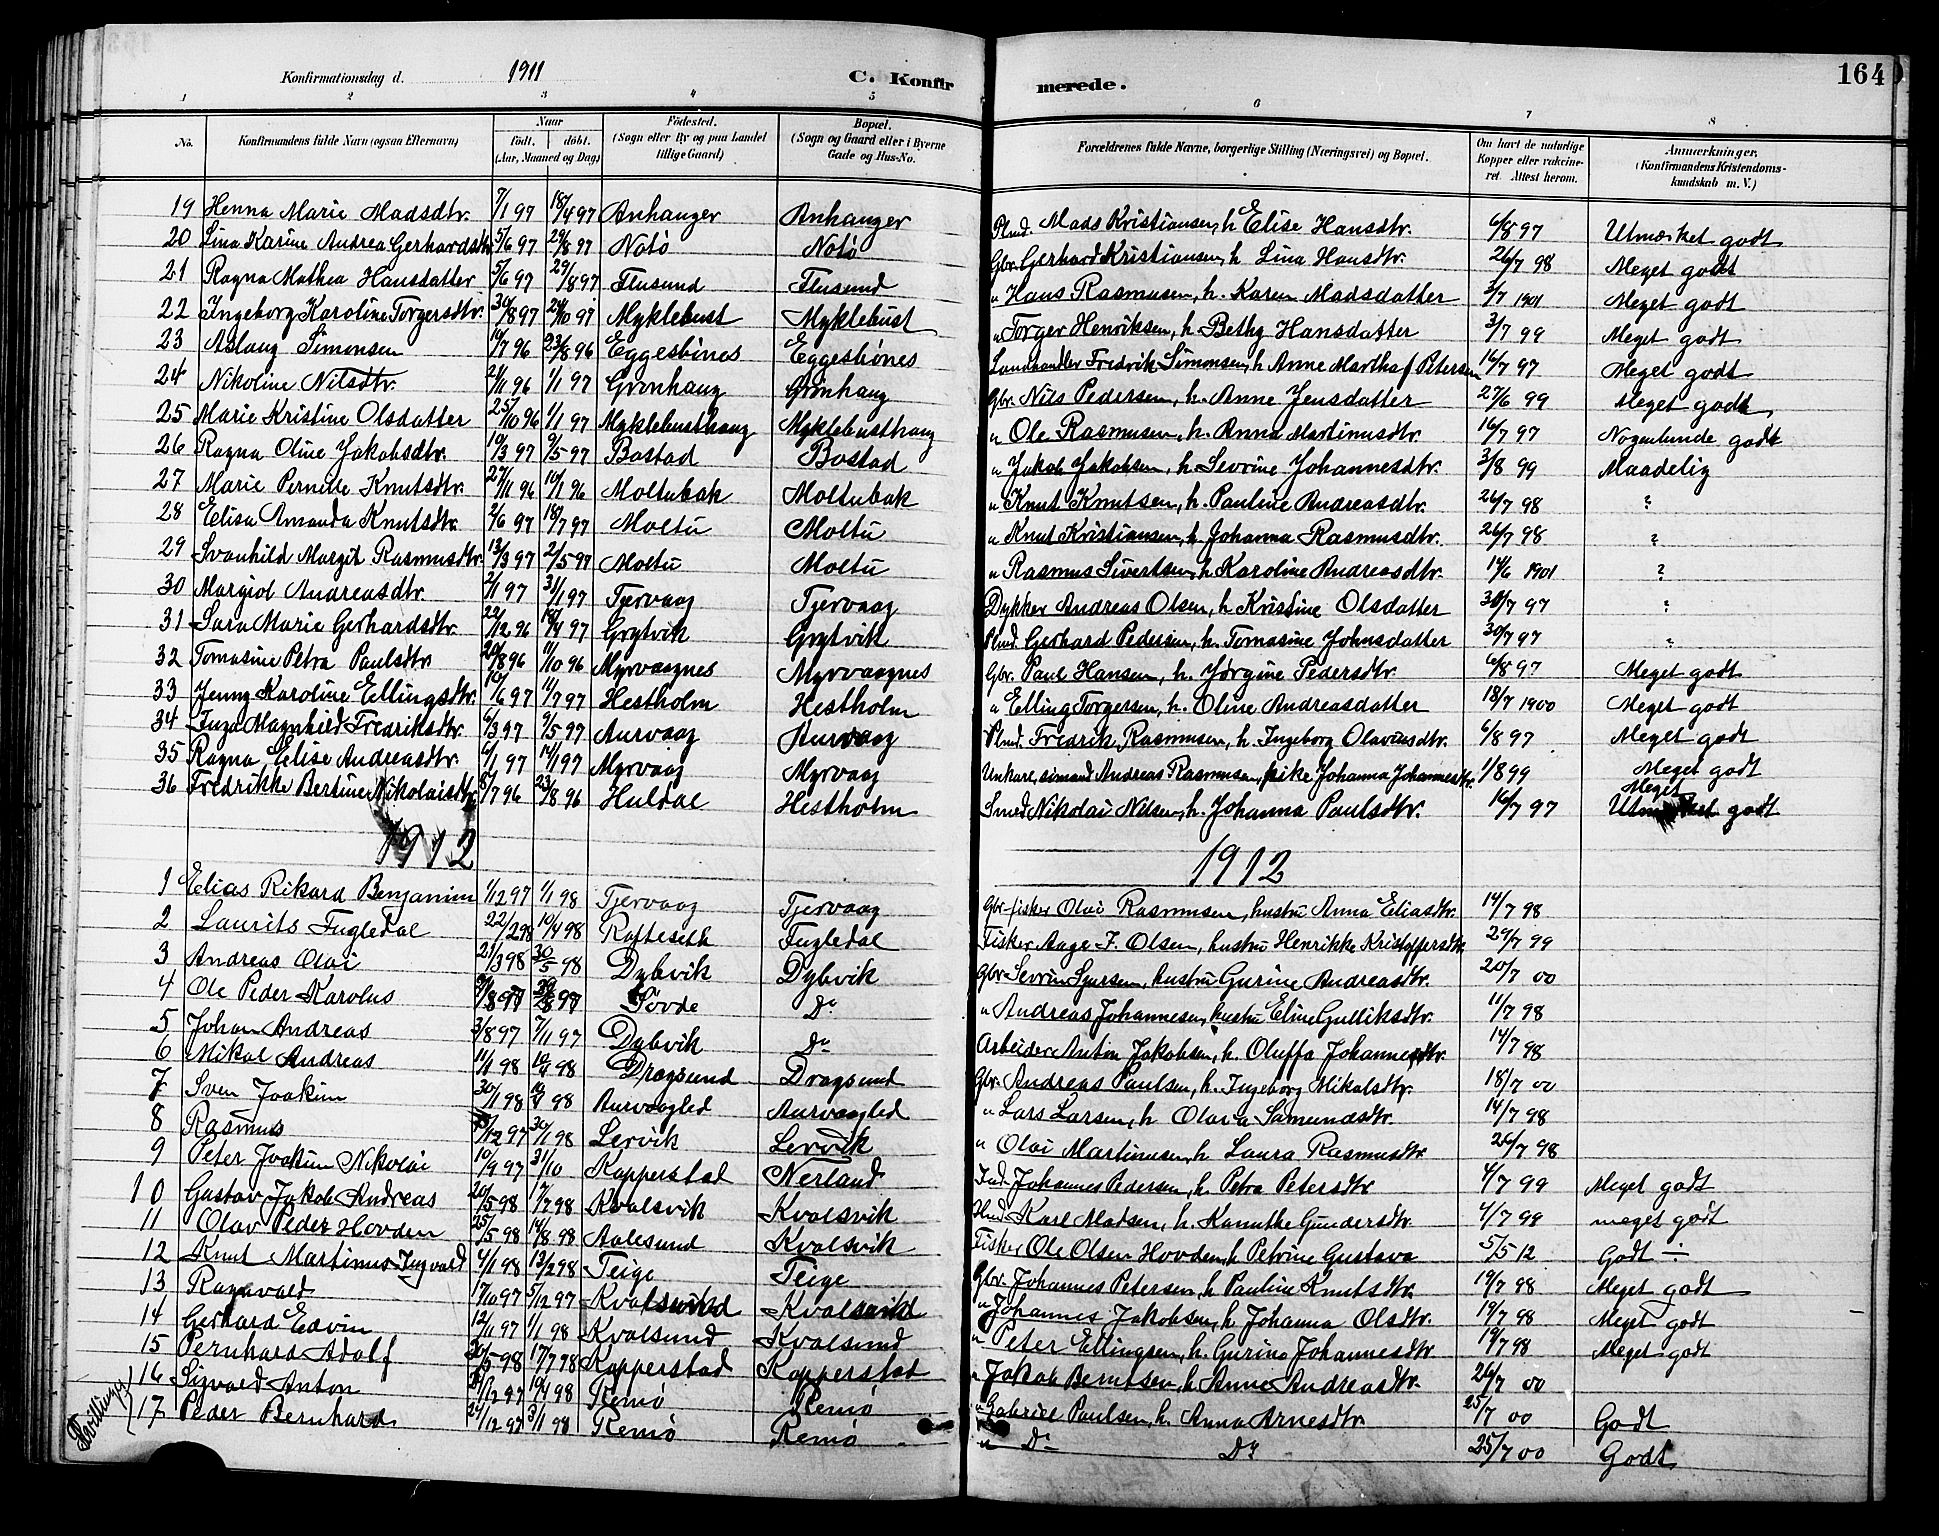 Konfirmationsdag d. 1911 C. Konfirmerede. 164
1 2 3 4 5 6 7 8
No. Konfirmandens fulde Navn (ogsaa Efternavn) Naar født. døbt. (Aar, Maaned og Dag) Fødested. (Sogn eller By og paa Landet tillige Gaard) Bopæl. (Sogn og Gaard eller i Byerne Gade og Hus-No. Forældrenes fulde Navne, borgerlige Stilling (Næringsvei) og Bopæl. Om havt de naturlige Kopper eller vakcineret. Attest herom. Anmærkninger. (Konfirmandens Kristendomskundskab m. V.)
19 Henna Marie Madsdtr. 7/1 97 18/4 97 Anhanger Anhanger Plud. Mads Kristiansen, h. Elise Hansdtr. 6/8 97 Utmærket godt
20 Lina Karine Andrea Gerhardsdtr. 5/6 97 29/8 97 Notø Notø Gbr. Gerhard Kristiansen, h Lina Hansdtr. 26/7 98 Meget godt
21 Ragna Mathea Hansdatter 5/6 97 29/8 97 Flusund Flusund " Hans Rasmusen, h. Karen Madsdatter 3/7 1901 Meget godt
22 Ingeborg Karoline Torgersdtr. 30/8 97 24/10 97 Myklebust Myklebust " Torger Henriksen, h. Bethy Hansdatter 3/7 99 Meget godt
23 Aslaug Simonsen 19/7 96 23/8 96 Eggesbönes Eggesbönes Landhandler Fredrik Simonsen, h. Anne Martha f. Petersen 16/7 97 Meget godt
24 Nikoline Nilsdtr. 21/11 96 1/1 97 Grönhaug Grönhaug Gbr. Nils Pedersen, h. Anne Jensdatter 27/6 99 Meget godt
25 Marie Kristine Olsdatter 25/10 96 1/1 97 Myklebusthaug Myklebusthaug " Ole Rasmusen, h. Anna Martinusdtr. 16/7 97 Nogenlunde godt
26 Ragna Oline Jakobsdtr. 10/3 97 9/5 97 Bostad Bostad " Jakob Jakobsen, h. Sevrine Johannesdtr. 3/8 99 Maadelig
27 Marie Pernille Knutsdtr. 27/11 96 10/1 96 Moltubak Moltubak " Knut Knutsen, h. Pauline Andreasdtr. 26/7 98 ?
28 Elisa Amanda Knutsdtr. 2/6 97 18/7 97 Moltu Moltu " Knut Kristiansen, h. Johanna Rasmusdtr. 26/7 98 ?
29 Svanhild Margit Rasmusdtr. 13/3 97 2/5 97 Moltu Moltu " Rasmus Sivertsen, h. Karoline Andreasdtr. 14/6 1901 ?
30 Margiol Andreasdtr. 2/1 97 31/1 97 Tjervaag Tjervaag Dykker Andreas Olsen, h. Kristine Olsdatter 30/7 97
31 Sara Marie Gerhardsdtr. 22/12 96 19/4 97 Grytvik Grytvik Plud. Gerhard Pedersen, h. Tomasine Johnsdatter 30/7 97
32 Tomasine Petra Paulsdtr. 20/8 96 11/10 96 Myrvaagnes Myrvaagnes Gbr. Paul Hansen, h. Jørgine Pedersdtr. 6/8 97 Meget godt
33 Jenny Karoline Ellingsdtr. 10/6 97 11/7 97 Hestholm Hestholm " Elling Torgersen, h. Oline Andreasdatter 18/7 1900 Meget godt
34 Inga Magnhild Fredriksdtr. 6/3 97 9/5 97 Aurvaag Aurvaag Plud. Fredrik Rasmusen, h. Ingeborg Olaviusdtr. 6/8 97 Meget godt
35 Ragna Elise Andreasdtr. 6/1 97 14/1 97 Myrvaag Myrvaag Unkarl, sömand Andreas Rasmusen, pike Johanna Johannesdtr. 1/8 99 Meget godt
36 Fredrikke Bertine Nikolaisdtr. 5/7 96 23/8 96 Huldal Hestholm Smed Nikolai Nilsen, h. Johanna Paulsdtr. 16/7 97 Meget godt
1912 1912
1 Elias Rikard Benjamin 1/12 97 1/1 98 Tjervaag Tjervaag Gbr-fisker Olai Rasmusen, hustru Anna Eliasdtr. 14/7 98
2 Laurits Fugledal 22/2 98 10/4 98 Rafteseth Fugledal Fisker Aage J. Olsen, hustru Henrikke Kristoffersdtr. 29/7 99
3 Andreas Olai 21/3 98 30/5 98 Dybvik Dybvik Gbr. Sevrin Sjursen, hustru Gurine Andreasdtr. 20/7 00
4 Ole Peder Karolus 8 97 97 Sövde Do. " Andreas Johannesen, hustru Eline Gulliksdtr. 11/7 98
5 Johan Andreas 3/8 97 7/11 97 Dybvik Do Arbeider Anton Jakobsen, h. Oluffa Johannesdtr. 14/7 98
6 Mikal Andreas 11/1 98 10/4 98 Dragsund Dragsund Gbr. Andreas Paulsen, h. Ingeborg Mikalsdtr. 18/7 00
7 Sven Joakim 30/1 98 10/4 98 Aurvaagled Aurvaagled " Lars Larsen, h Olava Samundsdtr. 14/7 98
8 Rasmus 12 97 30/1 98 Lervik Lervik " Olai Martinusen, h Laura Rasmusdtr. 26/7 98
9 Peter Joakim Nikolai 10/9 97 31/10 Kopperstad Nerland Ind. Johannes Pedersen, h. Petra Petersdtr 4/7 99 Meget godt
10 Gustav Jakob Andreas 20/5 98 17/7 98 Kvalsvik Kvalsvik Hmd. Karl Madsen, h. Kanutte Gundersdtr. 4/7 99 meget godt
11 Olav Peder Hovden 25/5 98 14/8 98 Aalesund Kvalsvik Fisker Ole Olsen Hovden, h Petrine Gustava 5/5 12 Godt ÷
12 Knut Martinus Ingvald 4/1 98 13/2 98 Teige Teige Gbr. Johannes Petersen, h Pauline Knutsdtr. 19/7 98 Meget godt
13 Ragnvald 17/10 97 5/12 97 Kvalsund Kvalsund " Johannes Jakobsen, h Johanna Olsdtr. 19/7 98 Meget godt
14 Gerhard Edvin 12/11 97 1/1 98 Kvalsund Kvalsund " Peter Ellingsen, h. Gurina Johannesdtr. 19/7 98 Meget godt
15 Pernhard Adolf 30/5 98 17/7 98 Kopperstad Kopperstad " Jakob Berntsen, h. Anne Andreasdtr. 26/7 00
16 Sigvald Anton 12 97 98 Remø Remø " Gabriel Paulsen, h. Anna Arnesdtr. 25/7 00 Godt
Tvillinger 17 Peder Bernhard 24/12 97 3/1 98 Remø Remø " Do Do 25/7 00 Godt